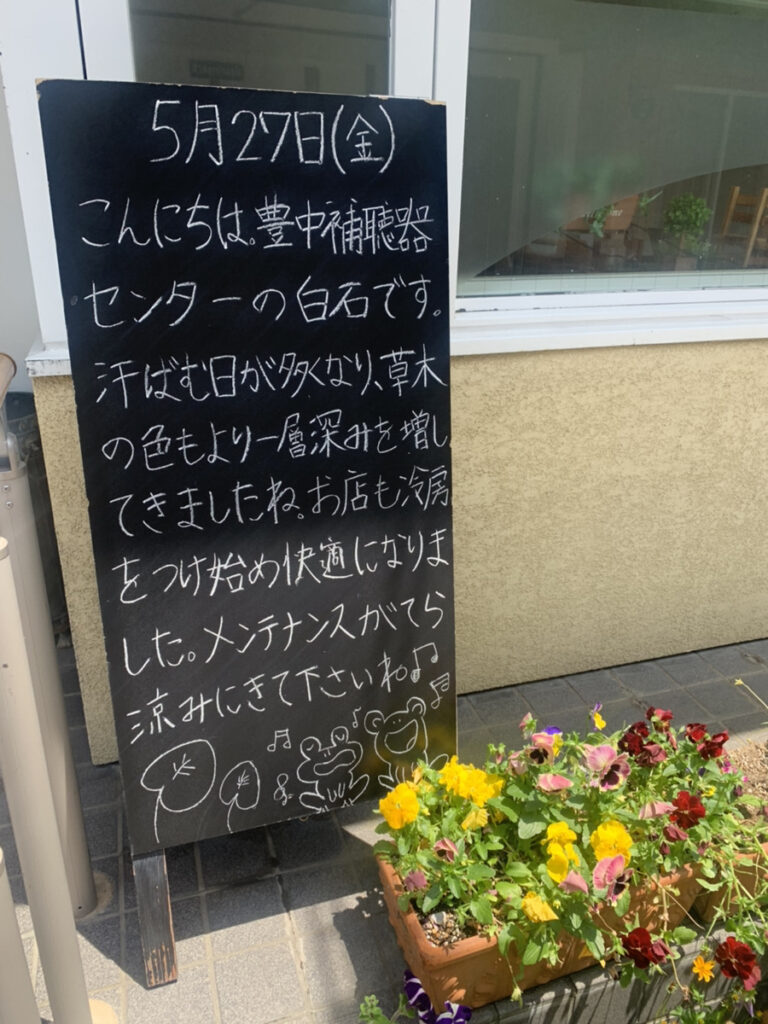 5月27日(金)
こんにちは。豊中補聴器
センターの白石です。
汗ばむ日が多くなり、草木
の色もより一層深みを増し
てきましたね。お店も冷房
をつけ始め快適になりま
した。メンテナンスがてら
涼みにきて下さいね♪